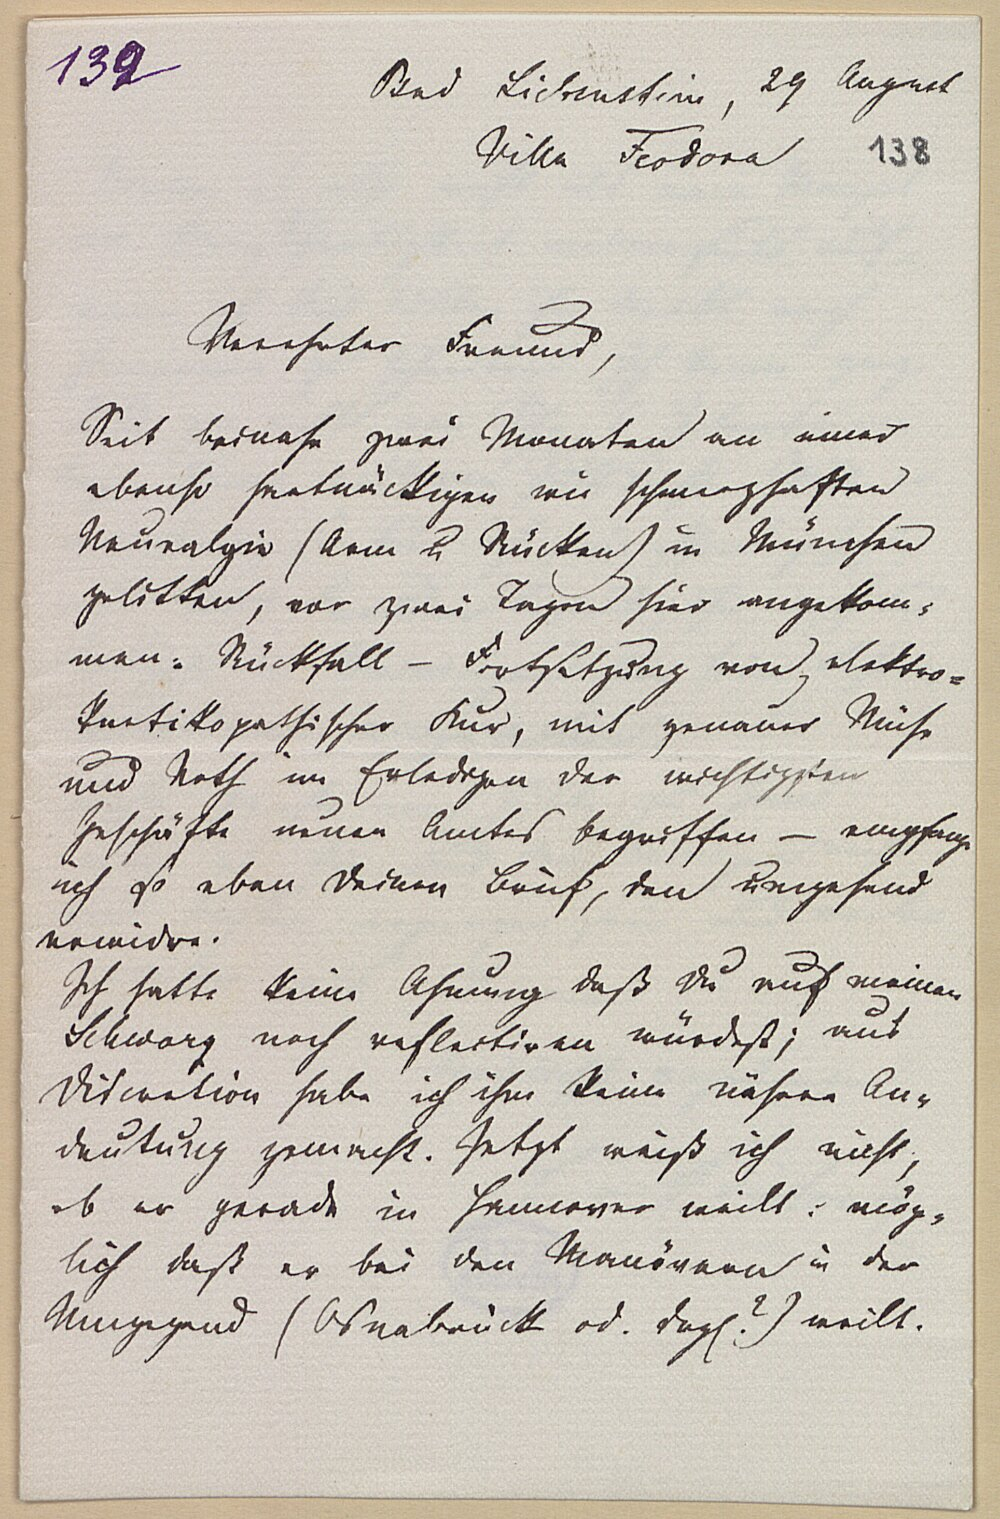 139
Bad Liebenstein, 29 August
Villa Feodora 138
Verehrter Freund,
Seit beinahe zwei Monaten an einer
ebenso hartnäckigen wie schmerzhaften
Neuralgie (Arm u Rücken) in München
gelitten, vor zwei Tagen hier angekom-
men. Rückfall — Fortsetzung von elektro-
Kur, mit genauer Mühe
und Noth im Erledigen der wichtigsten
Geschäfte neuen Amtes begriffen — empfange
ich so eben Deinen Brief, den umgehend
erwidre.
Ich hatte keine Ahnung daß Du auf meinen
Schwarz noch reflectiren würdest; aus
Discretion habe ich ihm keine nähere An-
deutung gemacht. Jetzt weiß ich nicht,
ob er gerade in Hannover weilt: mög-
lich daß er bei den Manövern in der
Umgegend (Osnabrück od. dgl.?) weilt.